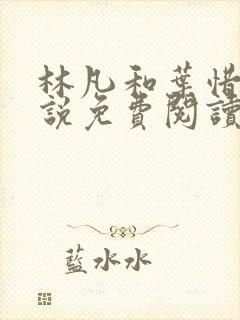 林凡和葉惜
說免費閱讀
藍水水